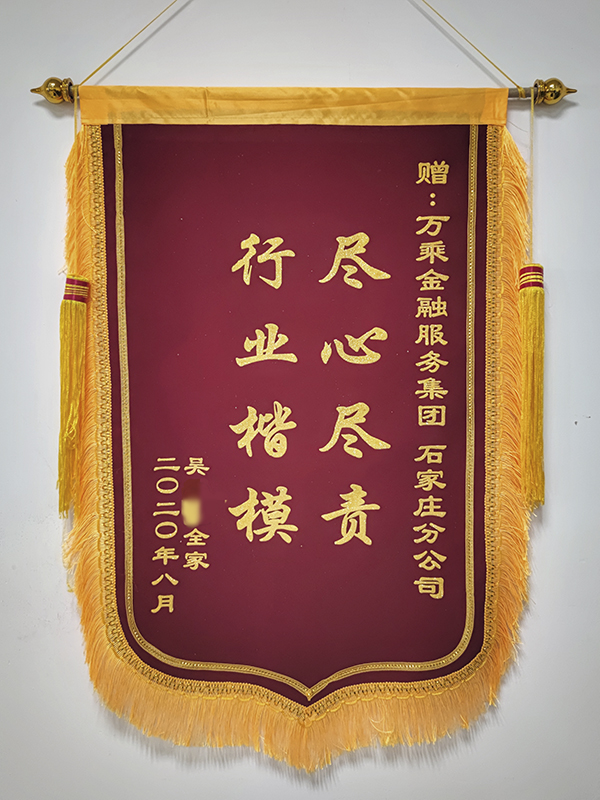 赠：万乘金融服务集团 石家庄分公司
尽心尽责
行业楷模
吴 全家
二〇二〇年八月